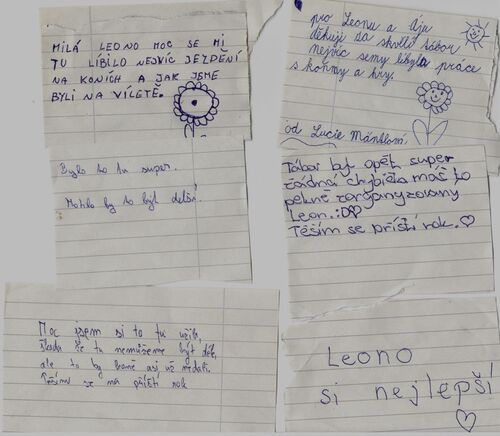 MILÁ LEONO MOC SE MI
TU LÍBILO NEJVÍC JEZDĚNÍ
NA KONÍCH A JAK JSME
BYLI NA VÍLETĚ.
pro Leonu a
děkuji za skvělí tábor
nejvíc semy líbyla práce
s koňmy a hry.
od Lucie
Bylo to tu super.
Mohlo by to být delší.
Tábor byl opět super
žádná chybička máš to
pěkně zorganyzovaný
Leon. :D
Těším se příští rok. ♡
Moc jsem si to tu užila,
škoda že tu nemůžeme být déle,
ale to by koně asi už nedali.
Těším se na příští rok
Leono
si nejlepší
♡